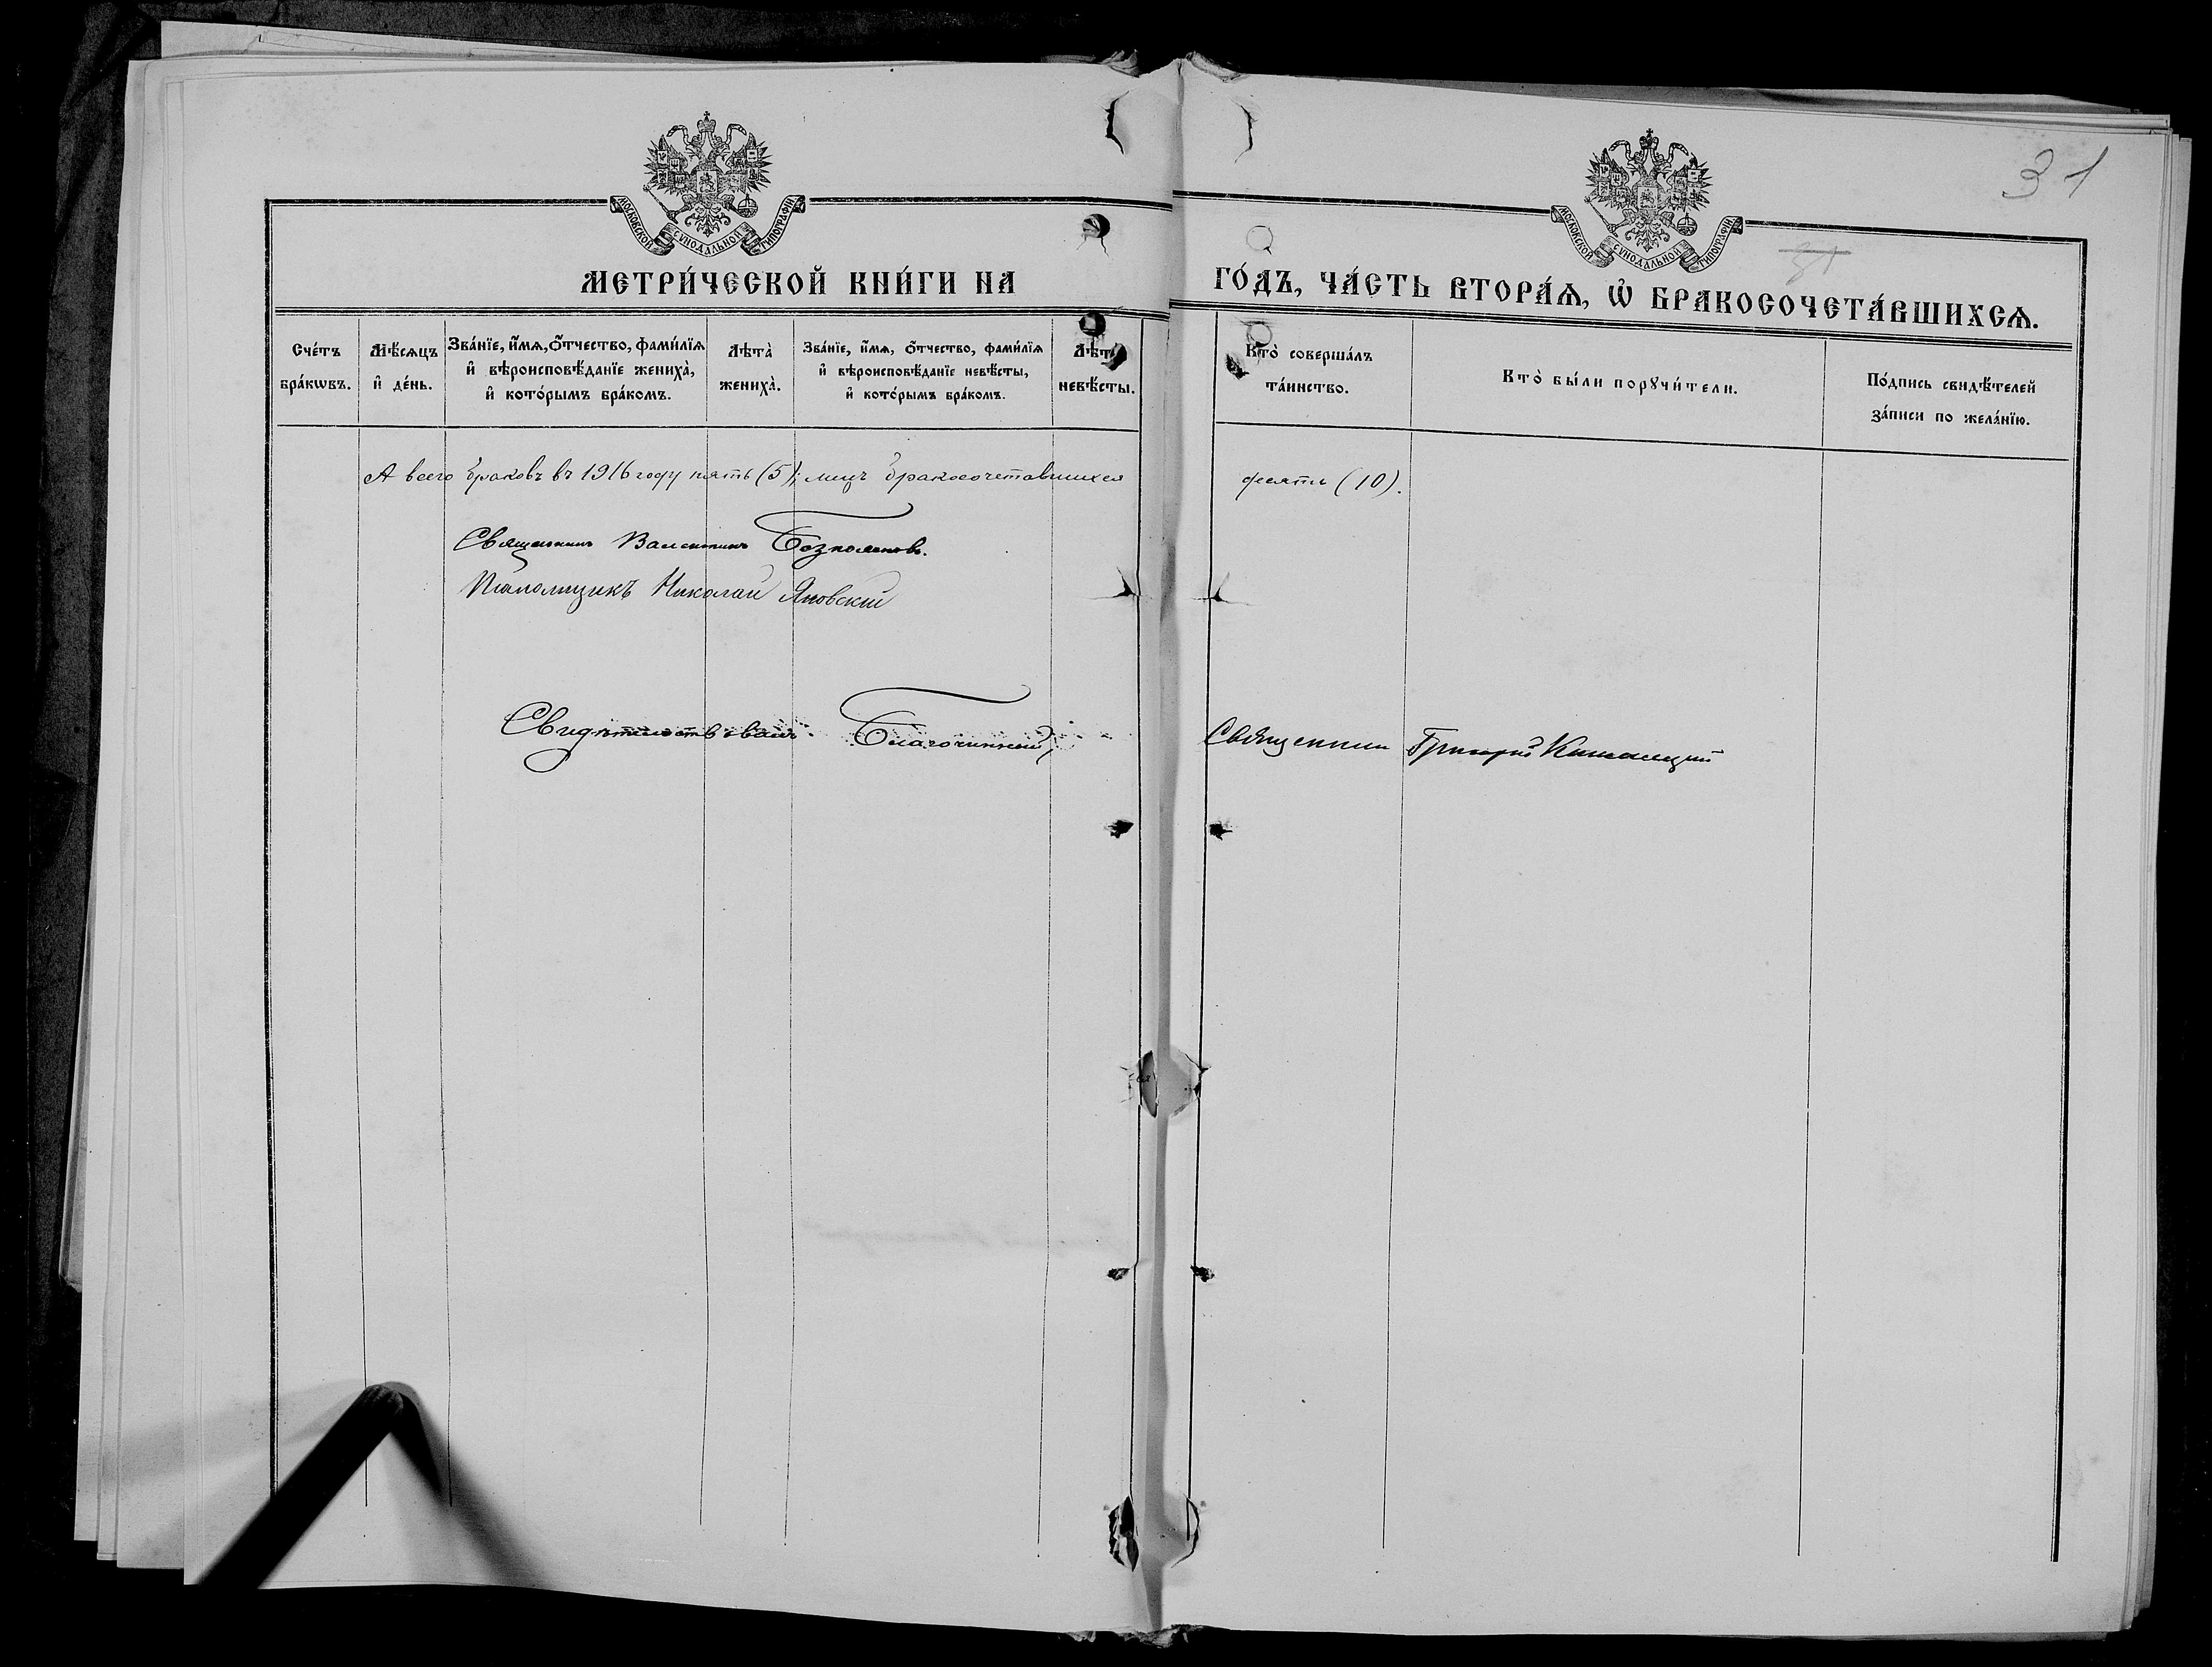 31
МОСКОВСКОЙ СѴНОДАЛЬНОЙ ТИПОГРАФІИ
МОСКОВСКОЙ СѴНОДАЛЬНОЙ ТИПОГРАФІИ
31
МЕТРИ́ЧЕСКОЙ КНИ́ГИ НА ГО́ДЪ, ЧА́СТЬ ВТОРА́Ѧ, Ѡ҆ БРАКОСОЧЕТА́ВШИХСѦ.
Сче́тъ бра́кѡвъ.
Мѣ́сяцъ и҆ де́нь.
Зва́нїе, и҆́мя, ѻ҆́тчество, фами́лїя
и҆ вѣроисповѣ́данїе жениха̀,
и҆ кото́рымъ бра́комъ.
Лѣта̀ жениха̀.
Зва́нїе, и҆́мя, ѻ҆́тчество, фами́лїя
и҆ вѣроисповѣ́данїе невѣ́сты,
и҆ кото́рымъ бра́комъ.
Лѣта̀ невѣ́сты.
Кто̀ соверша́лъ та́инство.
Кто̀ бы́ли порꙋчи́тели.
По́дпись свидѣ́телей за́писи по жела́нїю.
А всего браковъ въ 1916 году пять (5); лицъ бракосочетавшихся десять (10).
Священникъ Валентинъ
Псаломщикъ Николай Яновскій
Свидѣтельствовалъ Благочинный, Священникъ Григорій